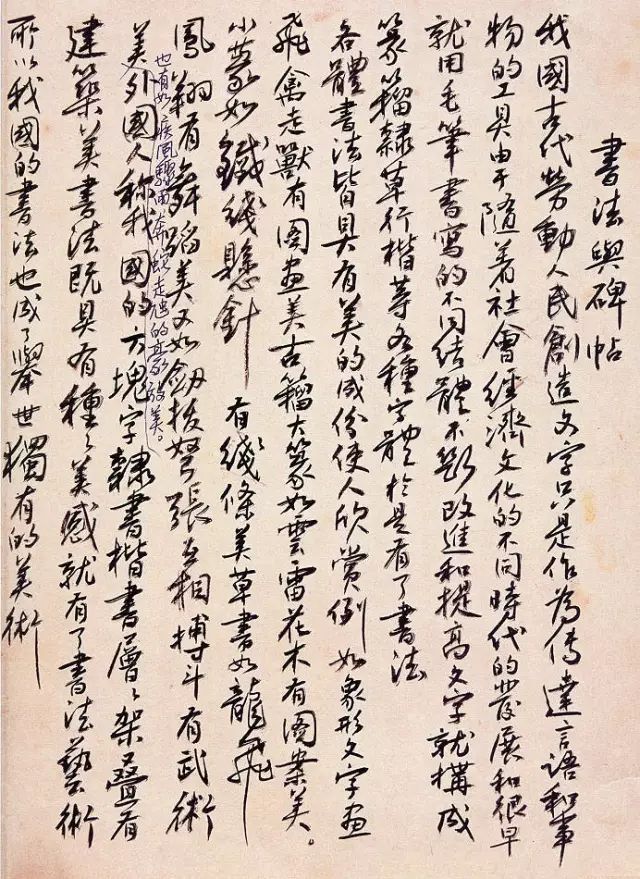 書法與碑帖
我國古代勞動人民創造文字只是作為傳達言語和事
物的工具由于隨着社會經濟文化的不同時代的發展和很早
就用毛筆書寫的不同結體不斷改進和提高文字就構成
篆籀隸草行楷等各種字體於是有了書法
各體書法皆具有美的成份使人欣賞例如象形文字畫
飛禽走獸有圖畫美古籀大篆如雲雷花木有圖案美。
小篆如鐵綫懸針有綫條美草書如龍飛
鳳翔有舞蹈美又如劍拔弩張互相搏斗有武術
也有如疾風驟雨奔蛇走虺的姿致美。
美外國人稱我國的方塊字隸書楷書層々架疊有
建築美書法既具有種々美感就有了書法藝術
所以我國的書法也成了舉世獨有的美術